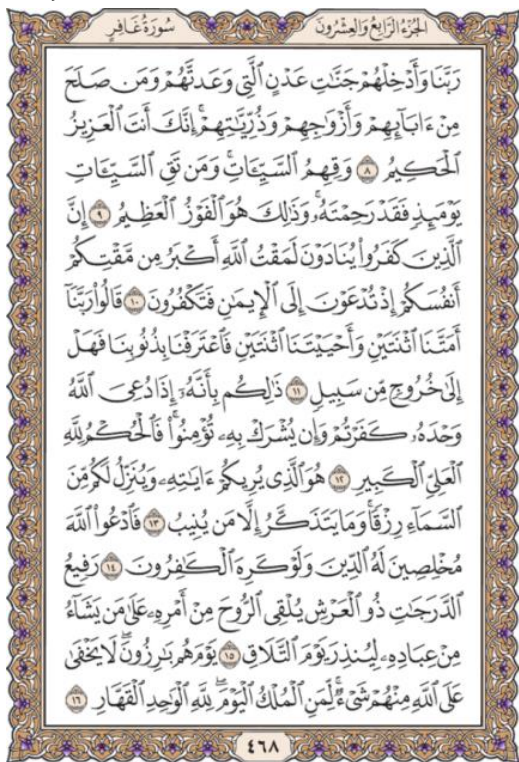 الجُزْءُ الرَّابِعُ وَالعِشْرُونَ سُورَةُ غَافِرٍ
رَبَّنَا وَأَدْخِلْهُمْ جَنَّٰتِ عَدْنٍ ٱلَّتِي وَعَدتَّهُمْ وَمَن صَلَحَ
مِنْ ءَابَآئِهِمْ وَأَزْوَٰجِهِمْ وَذُرِّيَّٰتِهِمْۚ إِنَّكَ أَنتَ ٱلْعَزِيزُ
ٱلْحَكِيمُ ٨ وَقِهِمُ ٱلسَّيِّـَٔاتِۚ وَمَن تَقِ ٱلسَّيِّـَٔاتِ
يَوْمَئِذٍ فَقَدْ رَحِمْتَهُۥۚ وَذَٰلِكَ هُوَ ٱلْفَوْزُ ٱلْعَظِيمُ ٩ إِنَّ
ٱلَّذِينَ كَفَرُوا۟ يُنَادَوْنَ لَمَقْتُ ٱللَّهِ أَكْبَرُ مِن مَّقْتِكُمْ
أَنفُسَكُمْ إِذْ تُدْعَوْنَ إِلَى ٱلْإِيمَٰنِ فَتَكْفُرُونَ ١٠ قَالُوا۟ رَبَّنَآ
أَمَتَّنَا ٱثْنَتَيْنِ وَأَحْيَيْتَنَا ٱثْنَتَيْنِ فَٱعْتَرَفْنَا بِذُنُوبِنَا فَهَلْ
إِلَىٰ خُرُوجٍ مِّن سَبِيلٍ ١١ ذَٰلِكُم بِأَنَّهُۥٓ إِذَا دُعِيَ ٱللَّهُ
وَحْدَهُۥ كَفَرْتُمْ وَإِن يُشْرَكْ بِهِۦ تُؤْمِنُوا۟ۚ فَٱلْحُكْمُ لِلَّهِ
ٱلْعَلِيِّ ٱلْكَبِيرِ ١٢ هُوَ ٱلَّذِي يُرِيكُمْ ءَايَٰتِهِۦ وَيُنَزِّلُ لَكُم مِّنَ
ٱلسَّمَآءِ رِزْقًاۚ وَمَا يَتَذَكَّرُ إِلَّا مَن يُنِيبُ ١٣ فَٱدْعُوا۟ ٱللَّهَ
مُخْلِصِينَ لَهُ ٱلدِّينَ وَلَوْ كَرِهَ ٱلْكَٰفِرُونَ ١٤ رَفِيعُ
ٱلدَّرَجَٰتِ ذُو ٱلْعَرْشِ يُلْقِي ٱلرُّوحَ مِنْ أَمْرِهِۦ عَلَىٰ مَن يَشَآءُ
مِنْ عِبَادِهِۦ لِيُنذِرَ يَوْمَ ٱلتَّلَاقِ ١٥ يَوْمَ هُم بَٰرِزُونَۖ لَا يَخْفَىٰ
عَلَى ٱللَّهِ مِنْهُمْ شَيْءٌۚ لِّمَنِ ٱلْمُلْكُ ٱلْيَوْمَۖ لِلَّهِ ٱلْوَٰحِدِ ٱلْقَهَّارِ ١٦
٤٦٨